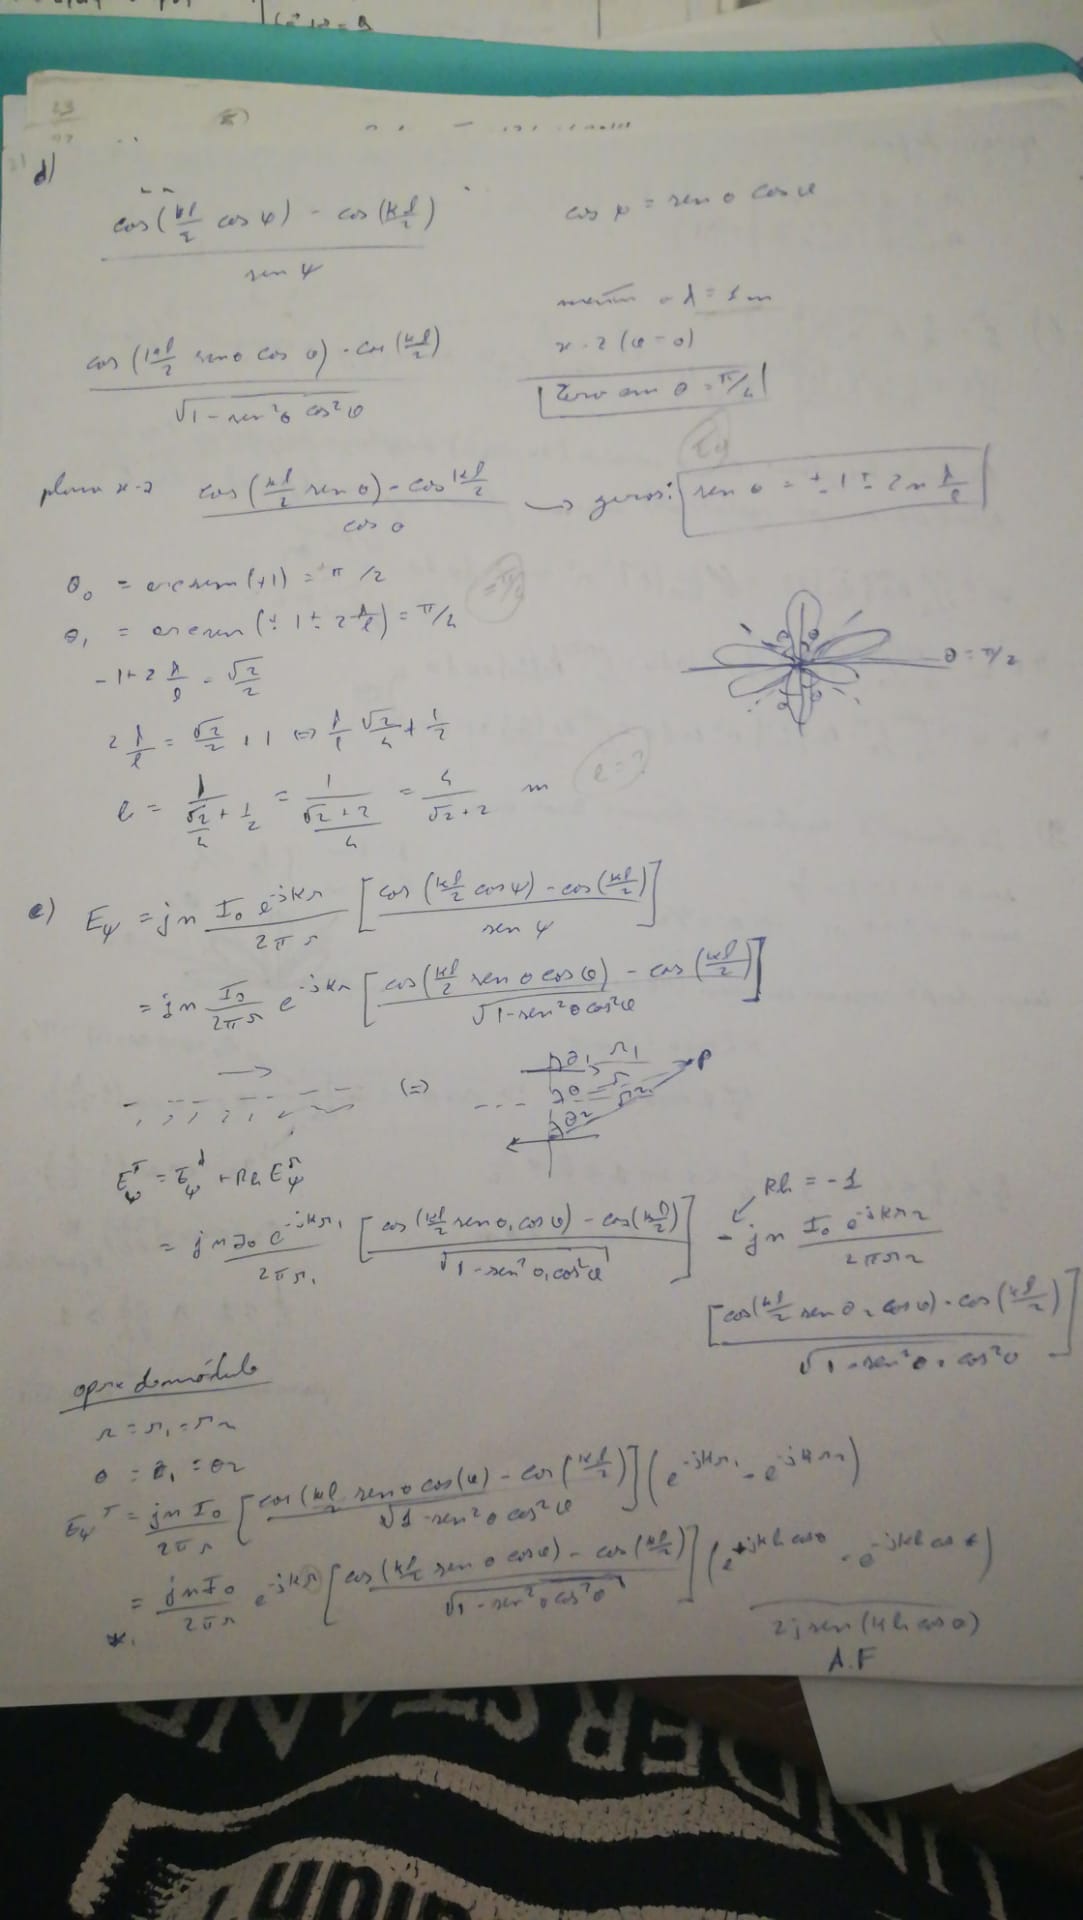 d)
cos(kl/2 cos ψ) - cos(kl/2)
sen ψ
cos ψ = sen θ cos φ
λ = 1 m
x-z (φ=0)
Zero em θ = π/4
cos(kl/2 sen θ cos φ) - cos(kl/2)
√1-sen²θ cos²φ
plano x-z cos(kl/2 sen θ) - cos kl/2 → zeros: sen θ = ± 1 ± 2n λ/l
cos θ
θ₀ = arcsen(±1) = π/2
θ₁ = arcsen(± 1 ± 2 λ/l) = π/4
θ = π/2
-1+2 λ/l = √2/2
2 λ/l = √2/2 + 1 (=) λ/l √2/4 + 1/2
l=?
l = λ/(√2/4 + 1/2) = 1/((√2+2)/4) = 4/(√2+2) m
e) Eψ = jη I₀ e^-jkr / 2πr [cos(kl/2 cos ψ) - cos(kl/2) / sen ψ]
= jη I₀/2πr e^-jkr [cos(kl/2 sen θ cos φ) - cos(kl/2) / √1-sen²θ cos²φ]
(=) θ₁ r₁ θ r θ₂ r₂ P
Eψ^T = Eψ^d + Rh Eψ^r
Rh = -1
= jη I₀ e^-jkr₁ / 2πr₁ [cos(kl/2 sen θ₁ cos φ) - cos(kl/2) / √1-sen²θ₁ cos²φ] - jη I₀ e^-jkr₂ / 2πr₂
[cos(kl/2 sen θ₂ cos φ) - cos(kl/2) / √1-sen²θ₂ cos²φ]
r = r₁ = r₂
θ = θ₁ = θ₂
Eψ^T = jη I₀ / 2πr [cos(kl/2 sen θ cos(φ) - cos(kl/2) / √1-sen²θ cos²φ] (e^-jkr₁ - e^-jkr₂)
= jη I₀ / 2πr e^-jkr [cos(kl/2 sen θ cos φ) - cos(kl/2) / √1-sen²θ cos²φ] (e^+jkh cos θ - e^-jkh cos θ)
2j sen(kh cos θ)
A.F